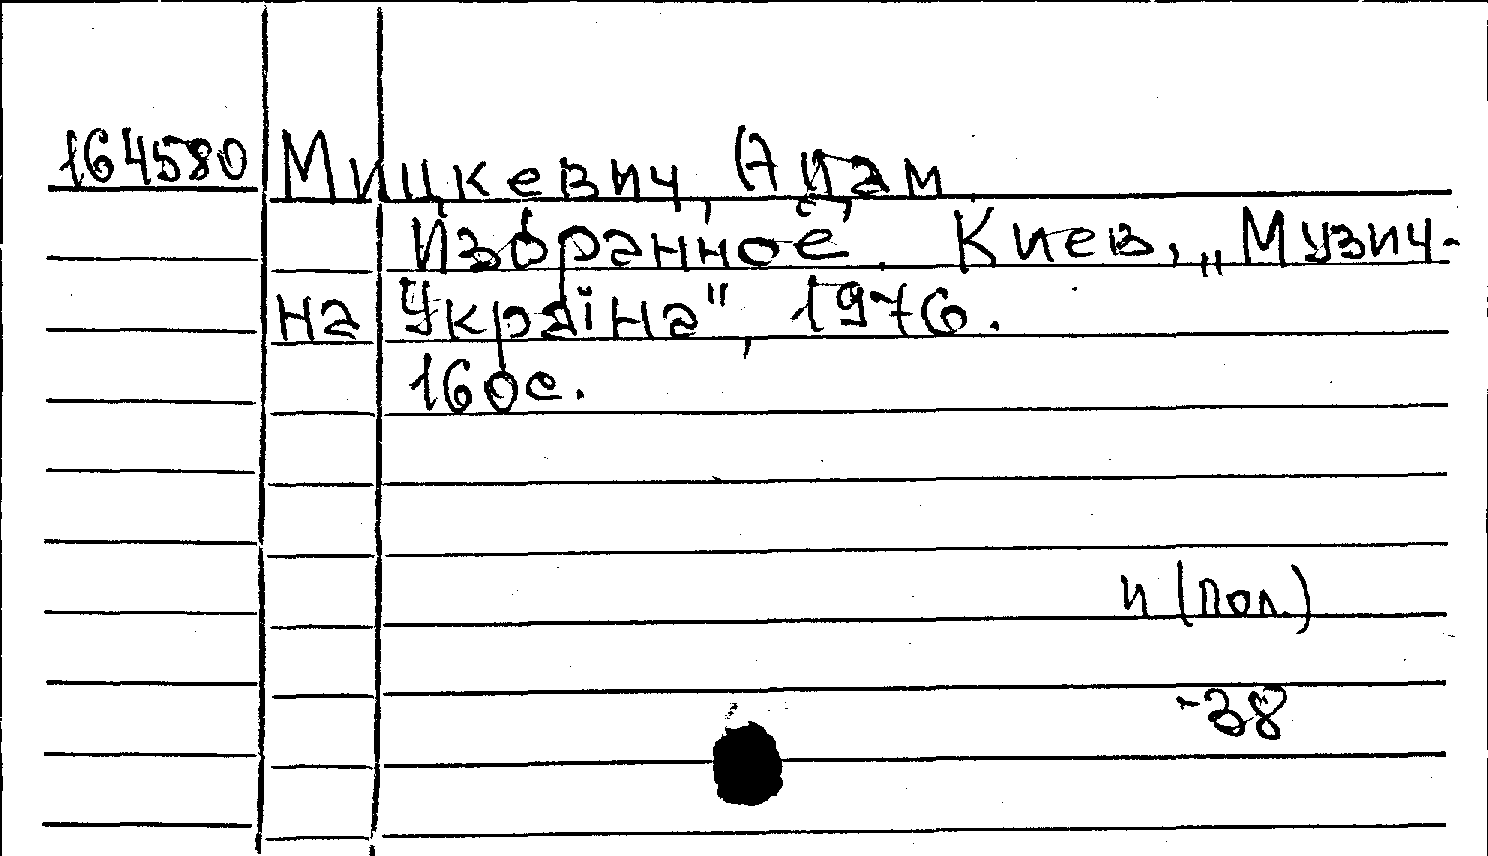 164580 Мицкевич, Адам.
Избранное. Киев, „Музич-
на Україна", 1976.
160с.
и (пол.)
-38